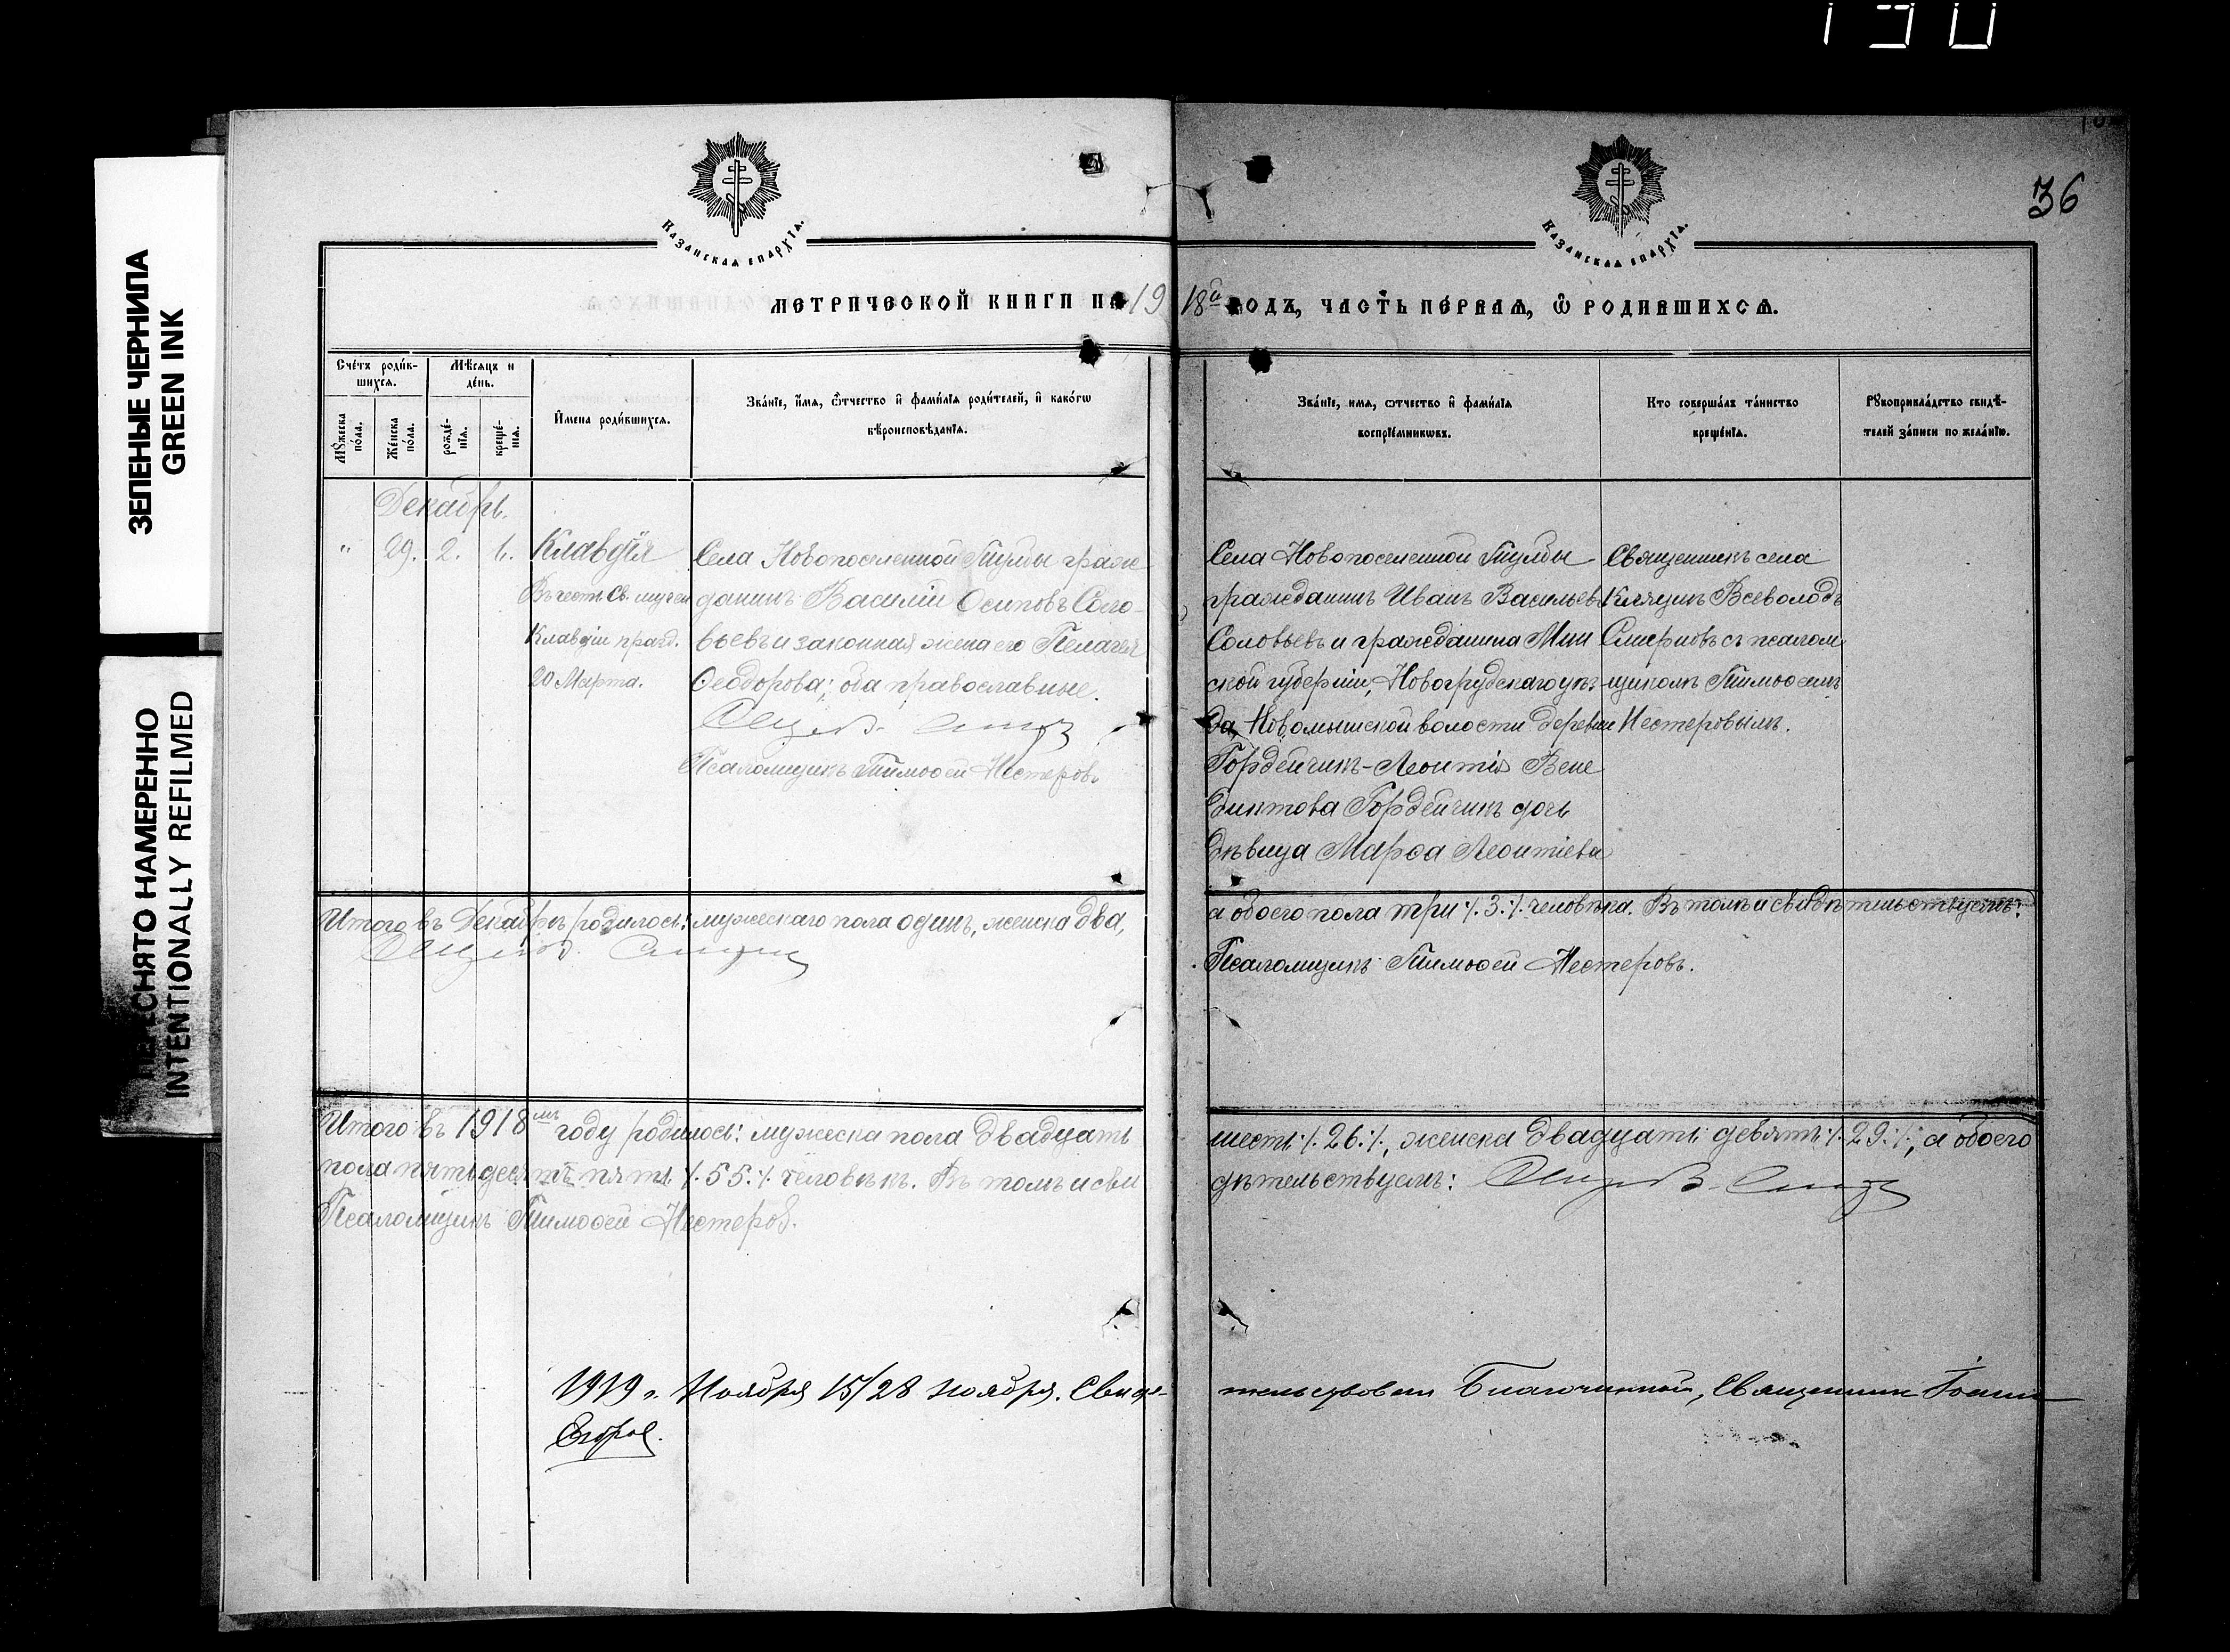 190
36
ЗЕЛЕНЫЕ ЧЕРНИЛА
GREEN INK
ПЕРЕСНЯТО НАМЕРЕННО
INTENTIONALLY REFILMED
Казанская епархїя.
Казанская епархїя.
Метрической книги на 1918й годъ, часть первая, ѡ родившихся.
Счетъ родив-
шихся.
Мѣсяцъ и
день.
Мꙋжеска
пола.
Женска
пола.
рожде-
нїя.
креще-
нїя.
Имена родившихся.
Званїе, имя, ѿчество и фамилїя родителей, и какогѡ
вѣроисповѣданїя.
Званїе, имя, ѿчество и фамилїя
воспрїемникѡвъ.
Кто совершалъ таинство
крещенїя.
Рꙋкоприкладство свидѣ-
телей записи по желанїю.
Декабрь.
" 29. 2. Клавдія
Въ честь Св. мучен
Клавдіи празд.
20 Марта.
Села Новопоселенной Тулбы граж
данинъ Василій Осиповъ Соло-
вьевъ и законная жена его Пелагея
Ѳеодорова; оба православные.
Псаломщикъ Тимоѳей Нестеровъ.
Села Новопоселенной Тулбы
гражданинъ Иванъ Васильевъ
Соловьевъ и гражданина Мин
ской губерніи, Новогрудскаго уѣз-
да, Новомышской волости деревни
Гордейчикъ-Леонтія Вене
диктова Гордейчикъ дочь
дѣвица Марѳа Леонтіева
Священникъ села
Всеволодъ
Смирновъ съ псалом
щикомъ Тимоѳеемъ
Нестеровымъ.
Итого въ Декабрѣ родилось: мужескаго пола одинъ, женска два,
а обоего пола три ٪.3.٪ человѣка. Въ томъ и свидѣтельствуемъ:
Псаломщикъ Тимоѳей Нестеровъ.
Итого въ 1918мъ году родилось: мужеска пола двадцать
шесть ٪.26.٪, женска двадцать девять ٪.29.٪, а обоего
пола пятьдесятъ пять ٪.55.٪ человѣкъ. Въ томъ и сви
дѣтельствуемъ:
Псаломщикъ Тимоѳей Нестеровъ.
1919 г. Ноября 15/28 ноября. Свидѣ-
тельствовалъ Благочинный, Священникъ Іоаннъ
Егоров.